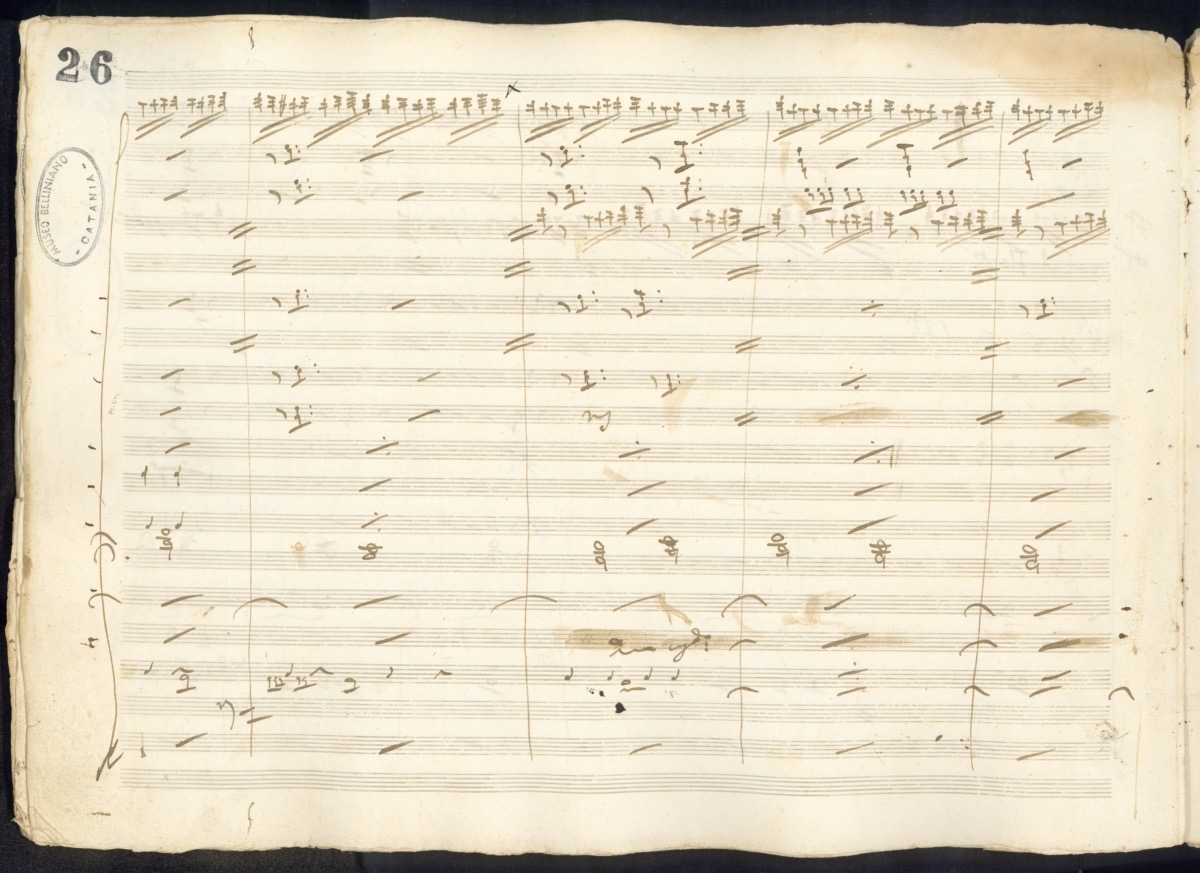 26
MUSEO BELLINIANO
- CATANIA -